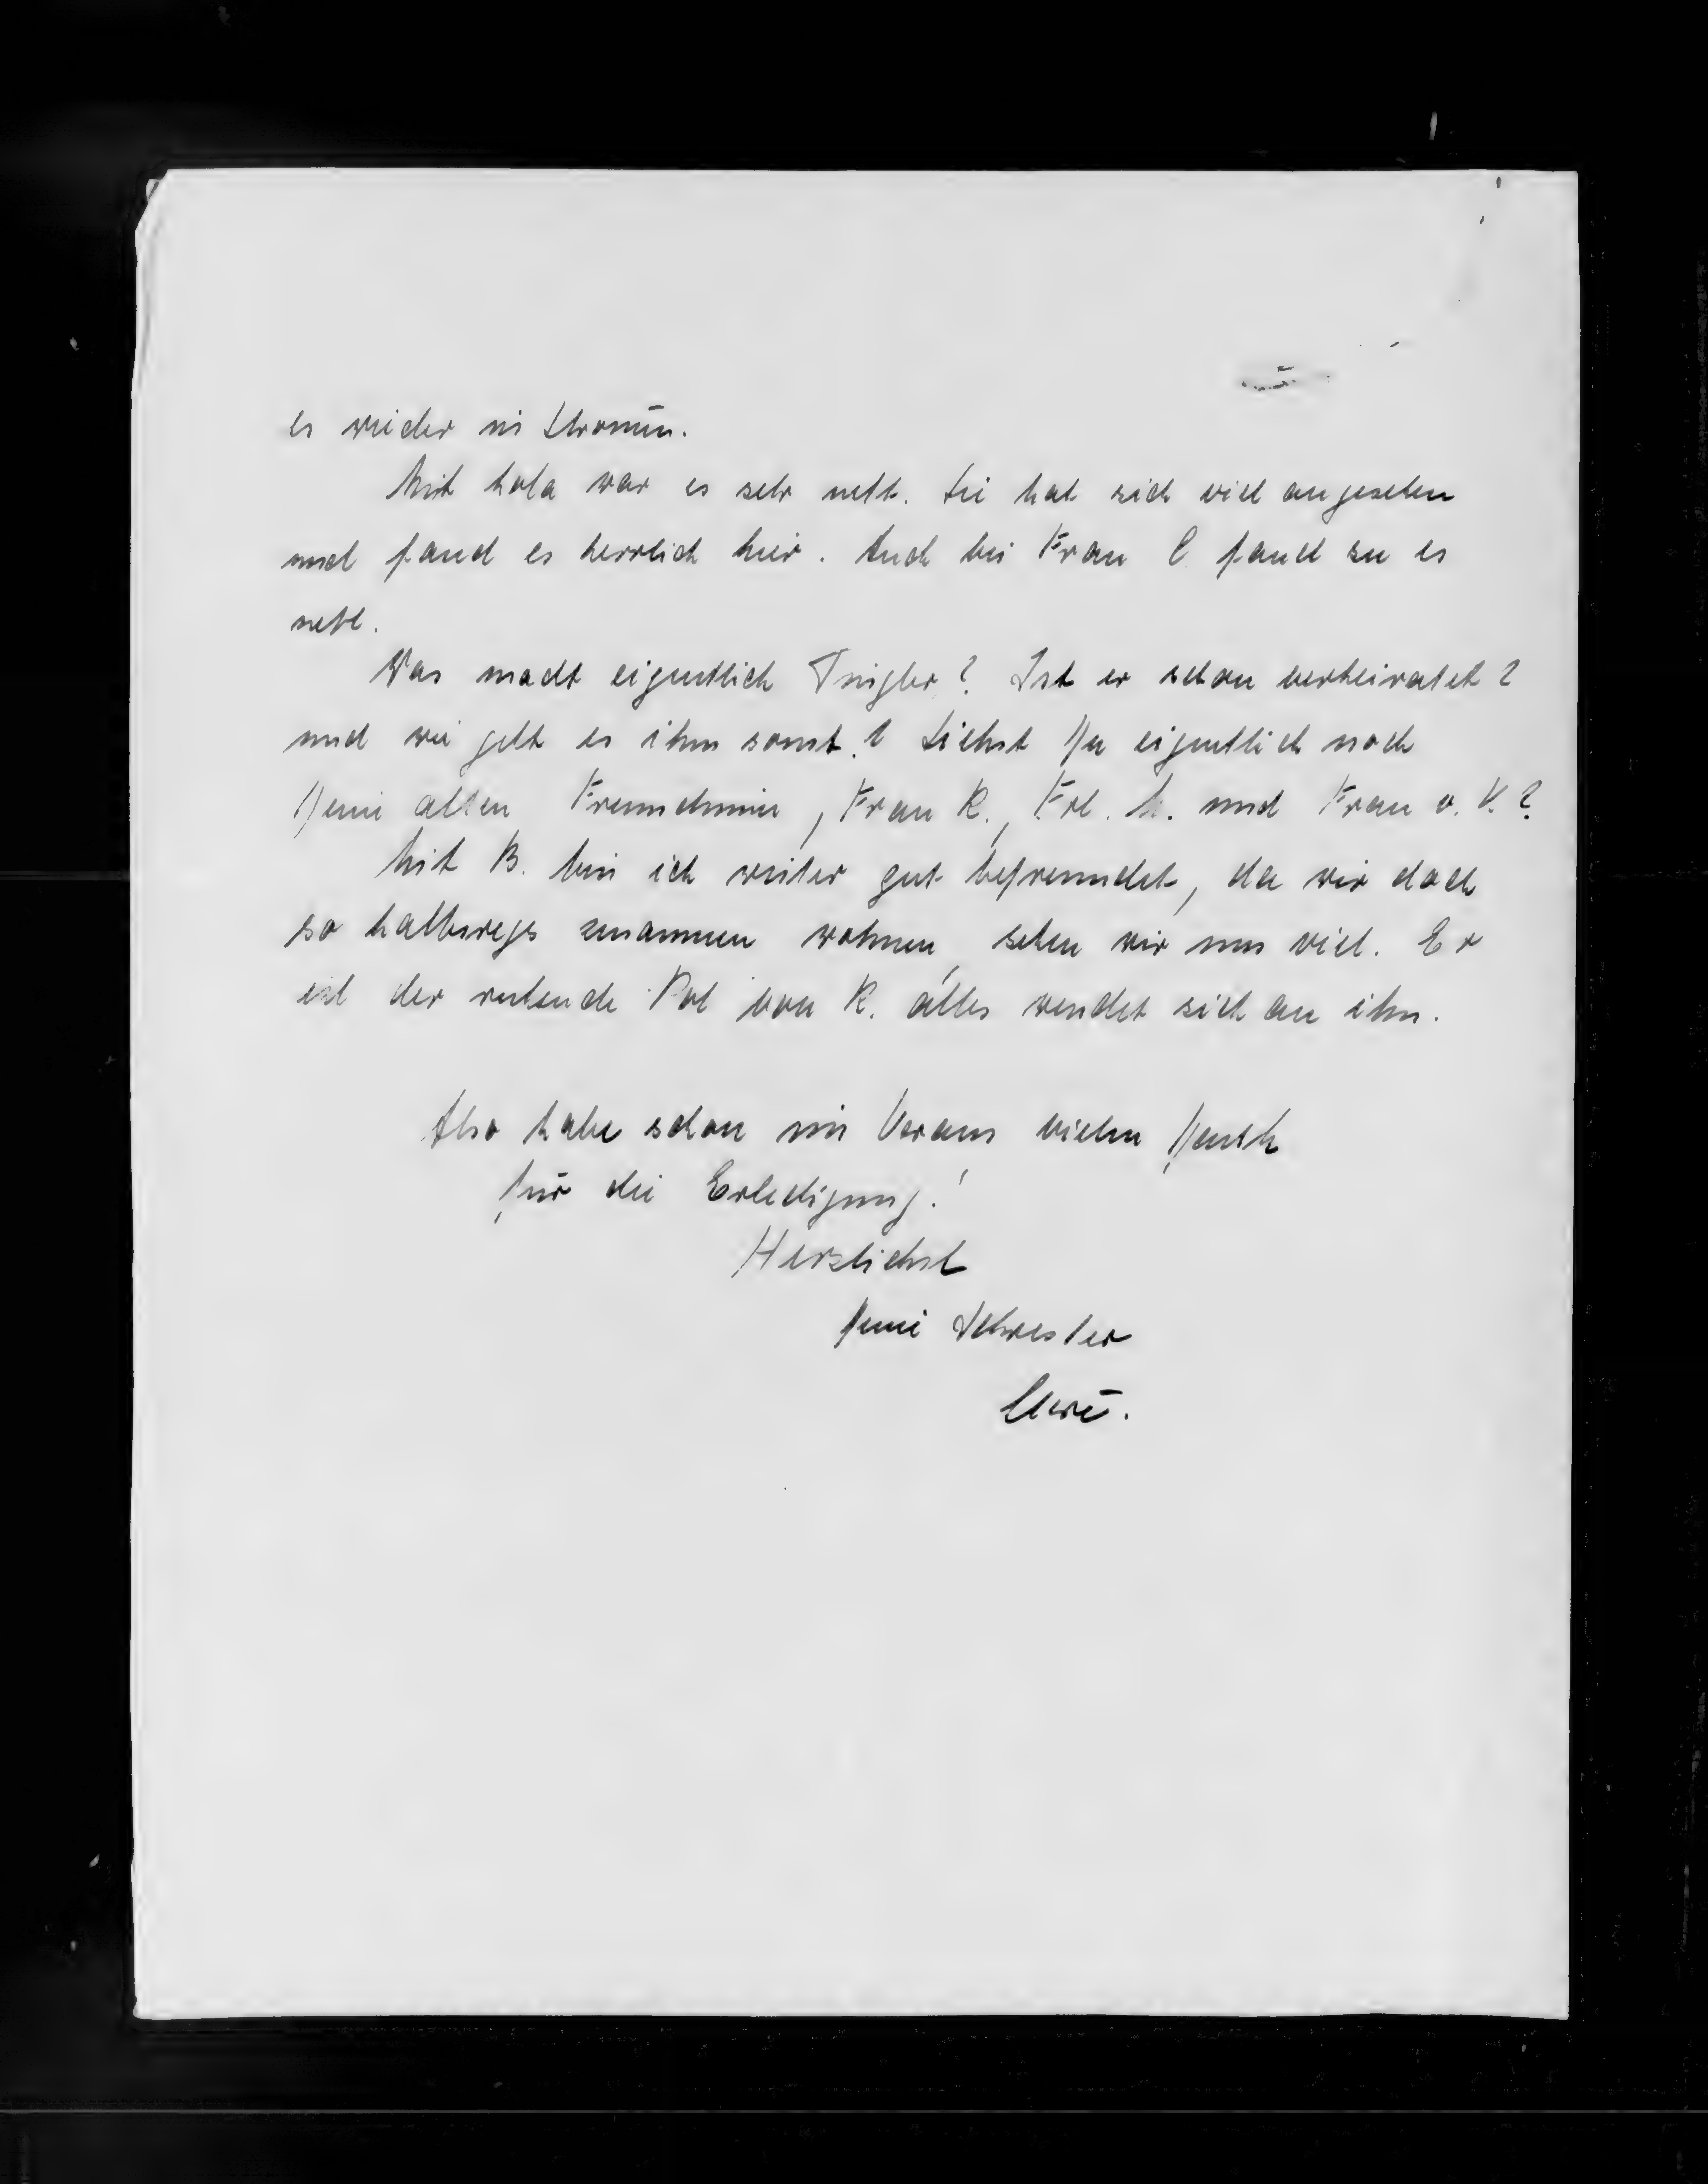 es wieder in Strömen.
Mit Lola war es sehr nett. Sie hat sich viel angesehen
und fand es herrlich hier. Auch bei Frau C fand sie es
nett.
Was macht eigentlich Tingler? Ist er schon verheiratet?
und wie geht es ihm sonst? Siehst Du eigentlich noch
Deine alten Freundinnen, Frau K., Frl. M. und Frau v. V.?
Mit B. bin ich weiter gut befreundet, da wir doch
so halbwegs zusammen wohnen, sehen wir uns viel. Er
ist der ruhende Pol von K. alles wendet sich an ihn.
Also habe schon im Voraus vielen Dank
für die Erledigung!
Herzlichst
Deine Schwester